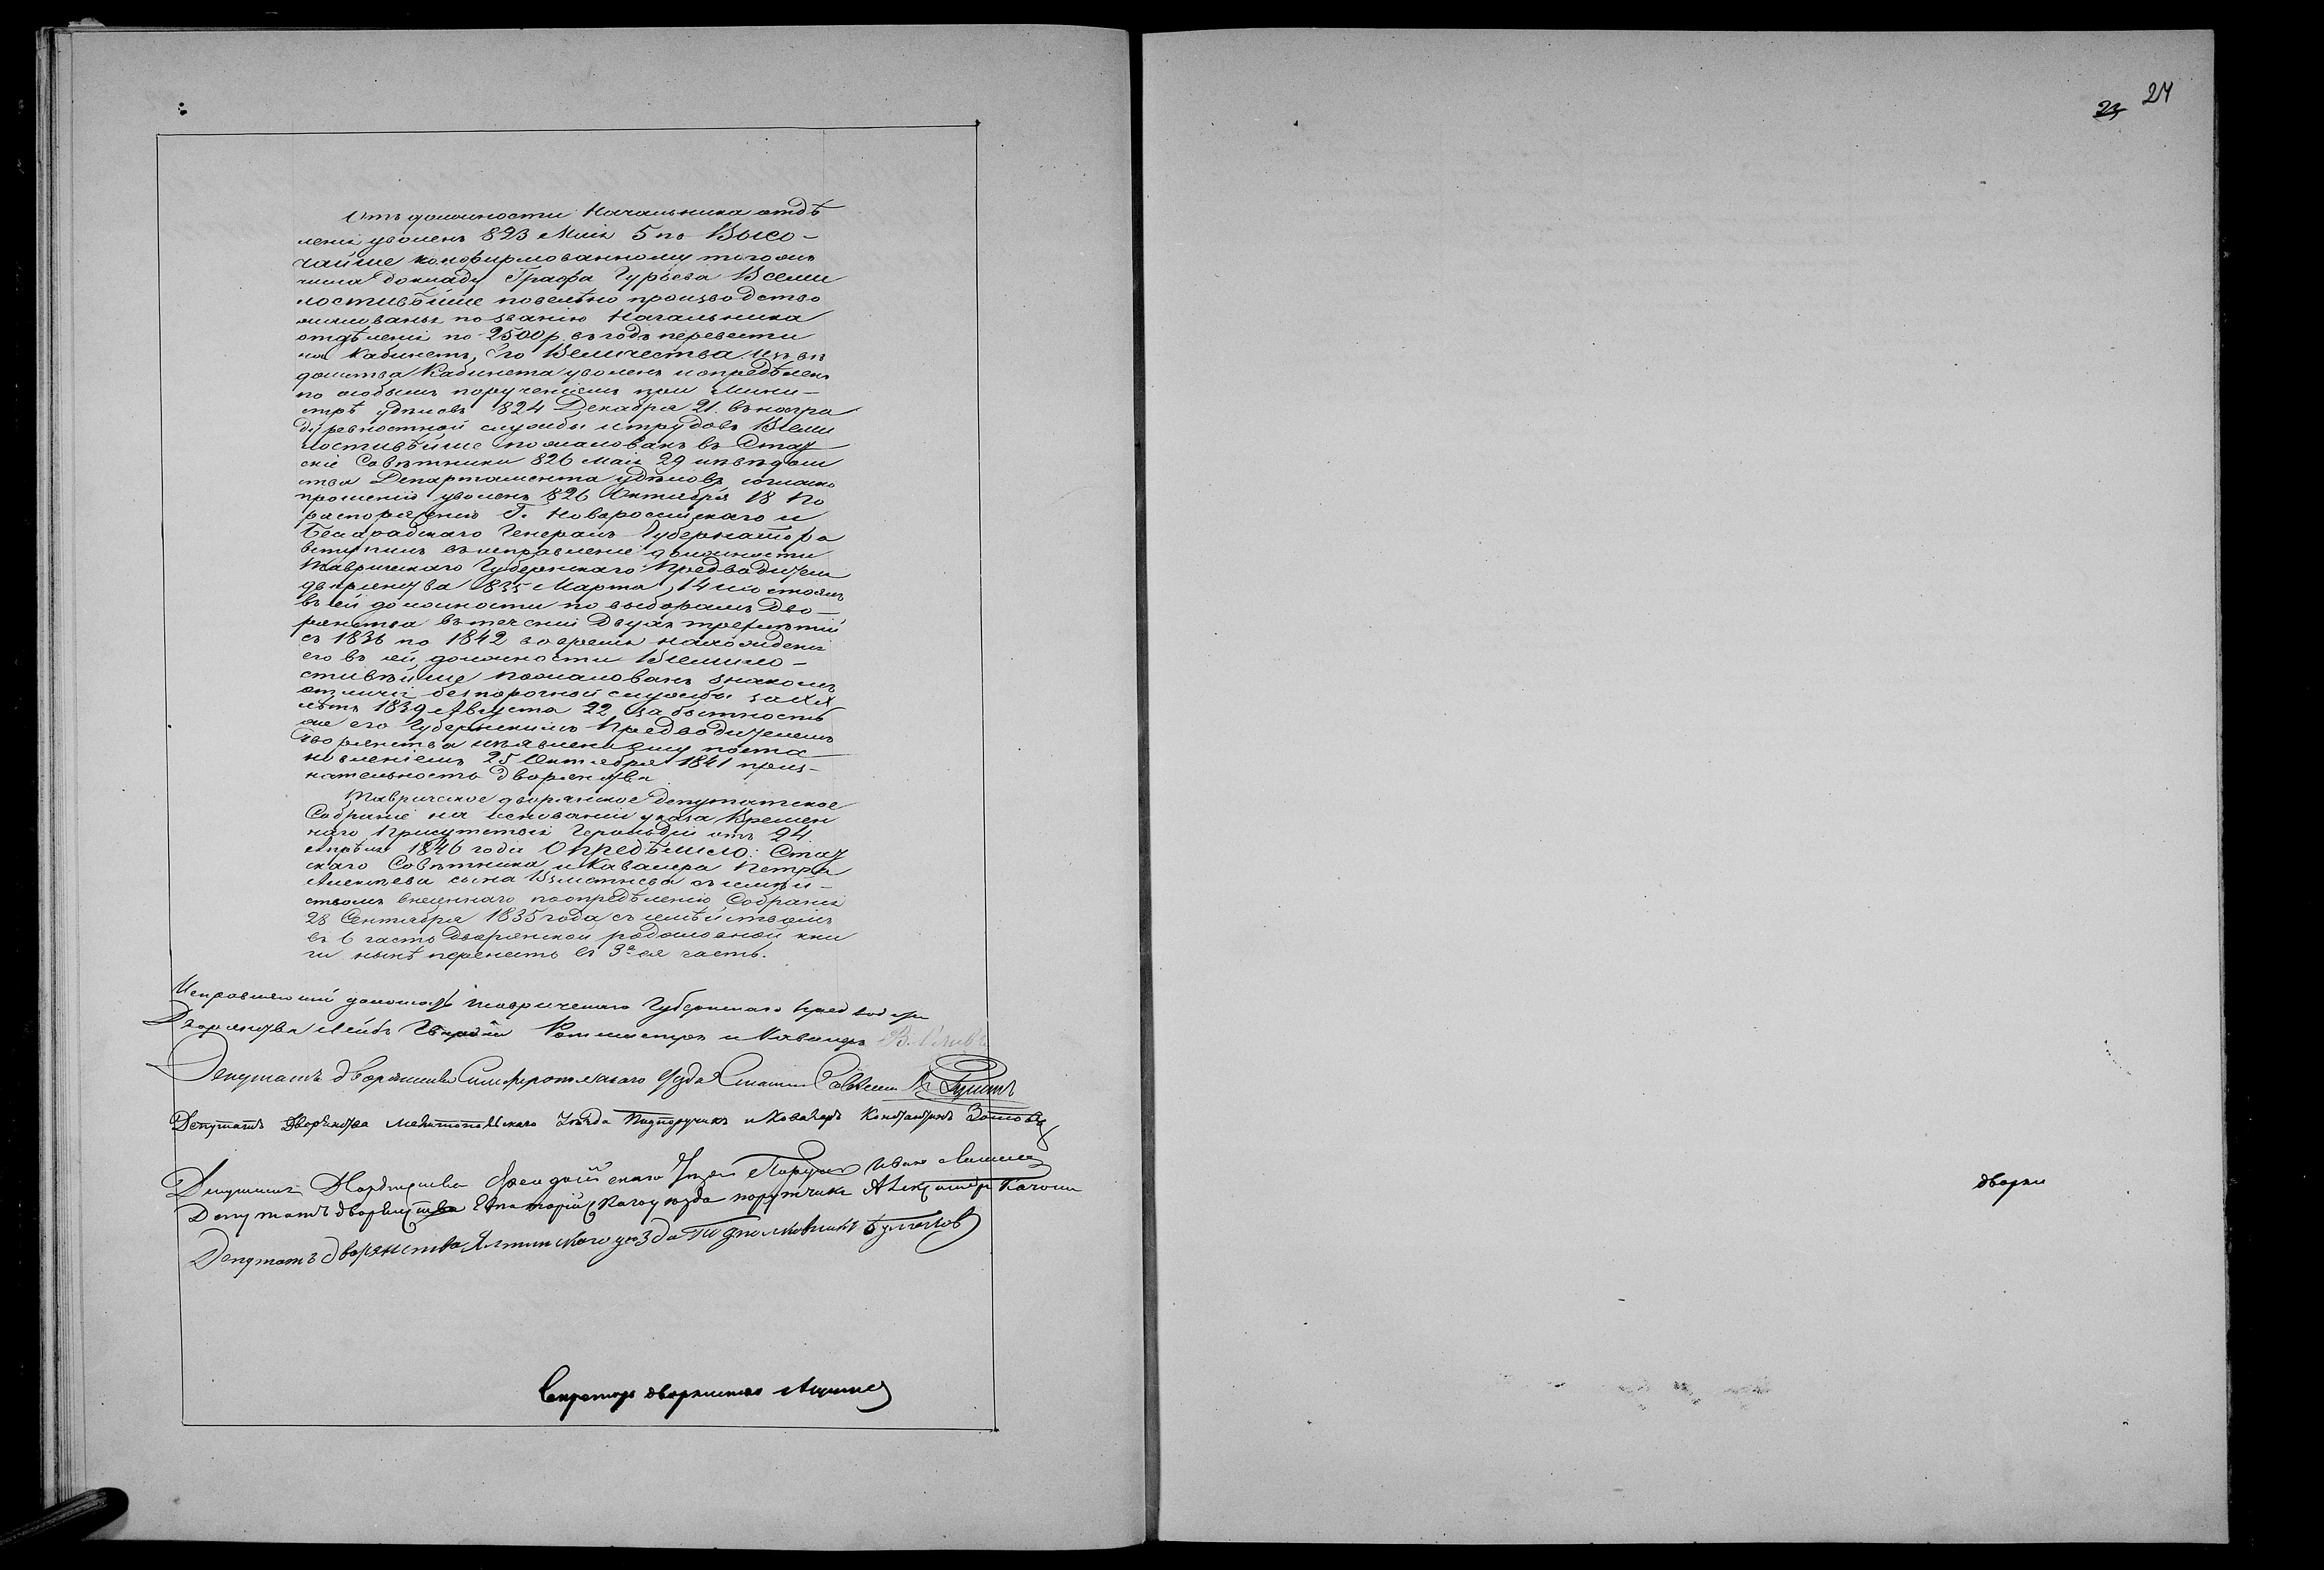 24
23
Отъ должности Начальника отдѣ
ленія уволенъ 823 Маія 5 по Высо-
чайше конфирмованному того жъ
числа докладу Графа Гурьева Всеми
лостивѣйше повелѣно производство
жалованья по званію Начальника
отдѣленія по 2500 р. въ годъ перевести
на Кабинетъ Его Величества. Изъ вѣ
домства Кабинета уволенъ и опредѣленъ
по особымъ порученіямъ при Мини-
стрѣ удѣловъ 824 Декабря 21. въ награ
ду ревностной службы и трудовъ Всеми
лостивѣйше пожалованъ въ Статс
скіе Совѣтники 826 Маія 29 изъ вѣдом
ства Департамента удѣловъ согласно
прошенію уволенъ 826 Октября 18 По
распоряженію Г. Новороссійскаго и
Бессарабскаго Генералъ Губернатора
вступилъ въ исправленіе должности
Таврическаго Губернскаго Предводителя
дворянства 1835 Марта 14 и состоялъ
въ сей должности по выборамъ Дво-
рянства въ теченіи двухъ трехлѣтій
съ 1836 по 1842 во время нахожденія
его въ сей должности Всемило-
стивѣйше пожалованъ знакомъ
отличія безпорочной службы за XX
лѣтъ 1839 Августа 22 за бытность
же его Губернскимъ Предводителемъ
дворянства изъявлена ему поста
новленіемъ 25 Октября 1841 приз-
нательность дворянства
Таврическое дворянское депутатское
Собраніе на основаніи указа Времен
наго Присутствія Герольдіи отъ 24
Апрѣля 1846 года Опредѣлило: Статс
скаго Совѣтника и Кавалера Петра
сына съ семей-
ствомъ внесеннаго по опредѣленію Собранія
28 Сентября 1835 года съ семѣйствомъ
въ 6 часть дворянской родословной кни
ги нынѣ перенесть въ 3ю часть.
Исправляющій должность Таврическаго Губернскаго Предводителя
Дворянства Лейбъ Гвардіи Ротмистръ и Кавалеръ В.
Депутатъ дворянства Симферопольскаго Уѣзда Статскій Совѣтникъ
Депутатъ Дворянства Мелитопольскаго Уѣзда Подпоручикъ и Кавалеръ Константинъ Зотовъ
Депутатъ Дворянства Феодосійскаго Уѣзда Поручикъ Иванъ
Депутатъ дворянства Евпаторійскаго уѣзда поручикъ Александръ Качони
Депутатъ дворянства Ялтинскаго уѣзда Подполковникъ
Секретарь дворянства
дворян